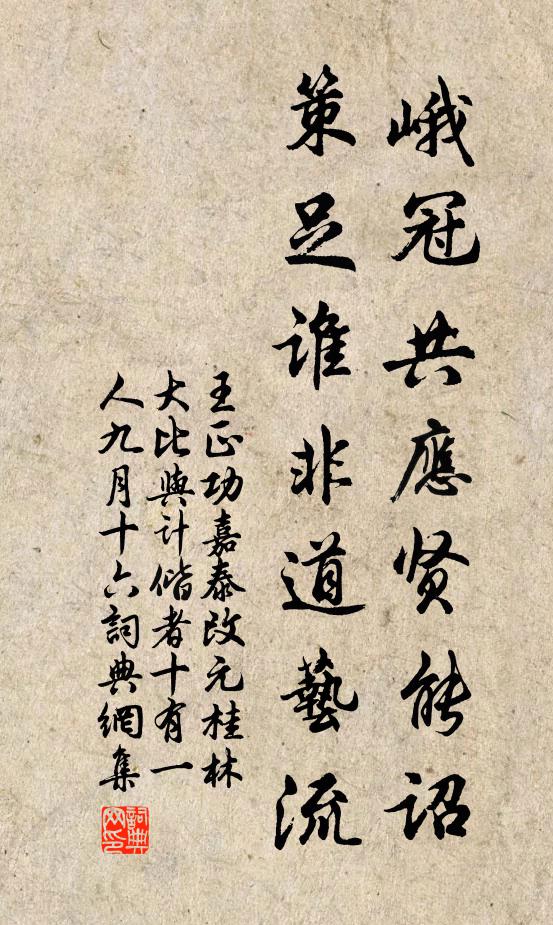 峨冠共應贤能詔
策足誰非道藝流
王正功嘉泰改元桂林
大比與計偕者十有一
人九月十六詞典網集
詞典网印